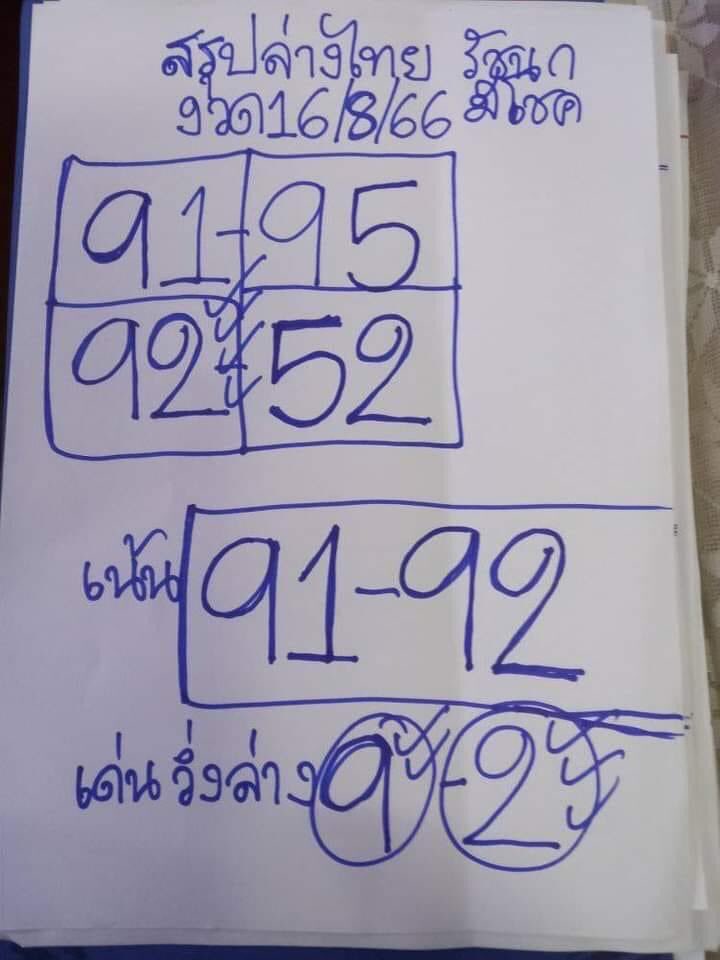 สรุปล่างไทย รัชนก
งวด16/8/66 มีโชค
91-95
92-52
เน้น 91-92
เด่นวิ่งล่าง 9-2